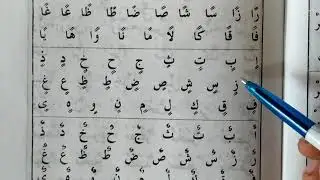 رًا زًا سًا شًا صًا ضًا طًا ظًا عًا غًا
فًا قًا كًا لًا مًا نًا وًا هًا يًا
إٍ بٍ تٍ ثٍ جٍ حٍ خٍ دٍ ذٍ
زٍ سٍ شٍ صٍ ضٍ طٍ ظٍ عٍ غٍ
فٍ قٍ كٍ لٍ مٍ نٍ وٍ هٍ يٍ
أٌ بٌ تٌ ثٌ جٌ حٌ خٌ دٌ ذٌ
رٌ زٌ سٌ شٌ صٌ ضٌ طٌ ظٌ عٌ غٌ